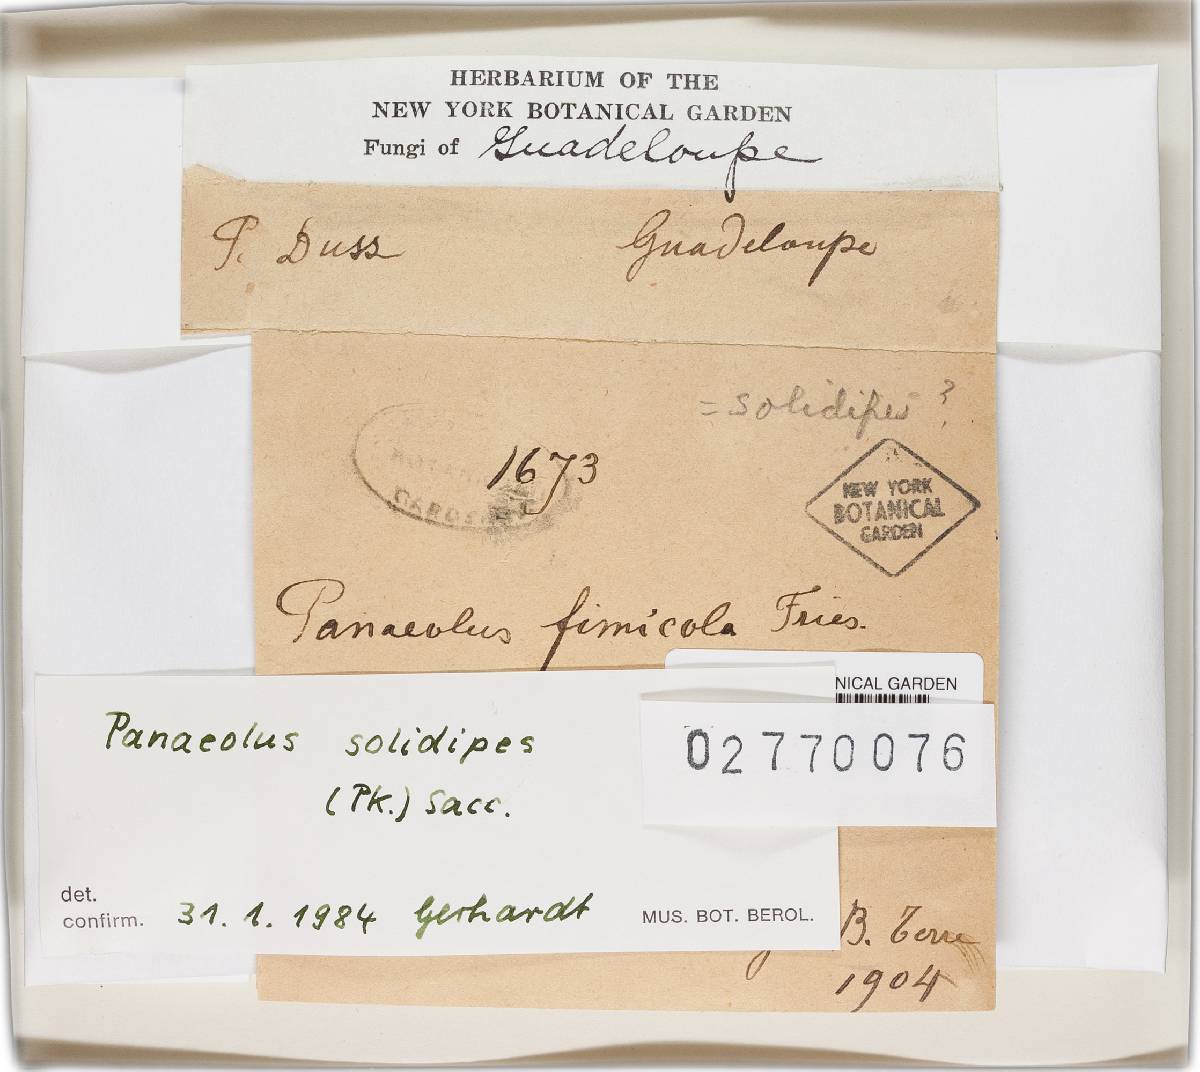 HERBARIUM OF THE
NEW YORK BOTANICAL GARDEN
Fungi of Guadeloupe
P. Duss Guadeloupe
= solidipes ?
1673
BOTAN
GARDEN
NEW YORK
BOTANICAL
GARDEN
Panaeolus fimicola Fries.
NICAL GARDEN
02770076
Panaeolus solidipes
(Pk.) Sacc.
det.
confirm. 31. 1. 1984 Gerhardt MUS. BOT. BEROL.
B. Terre
1904